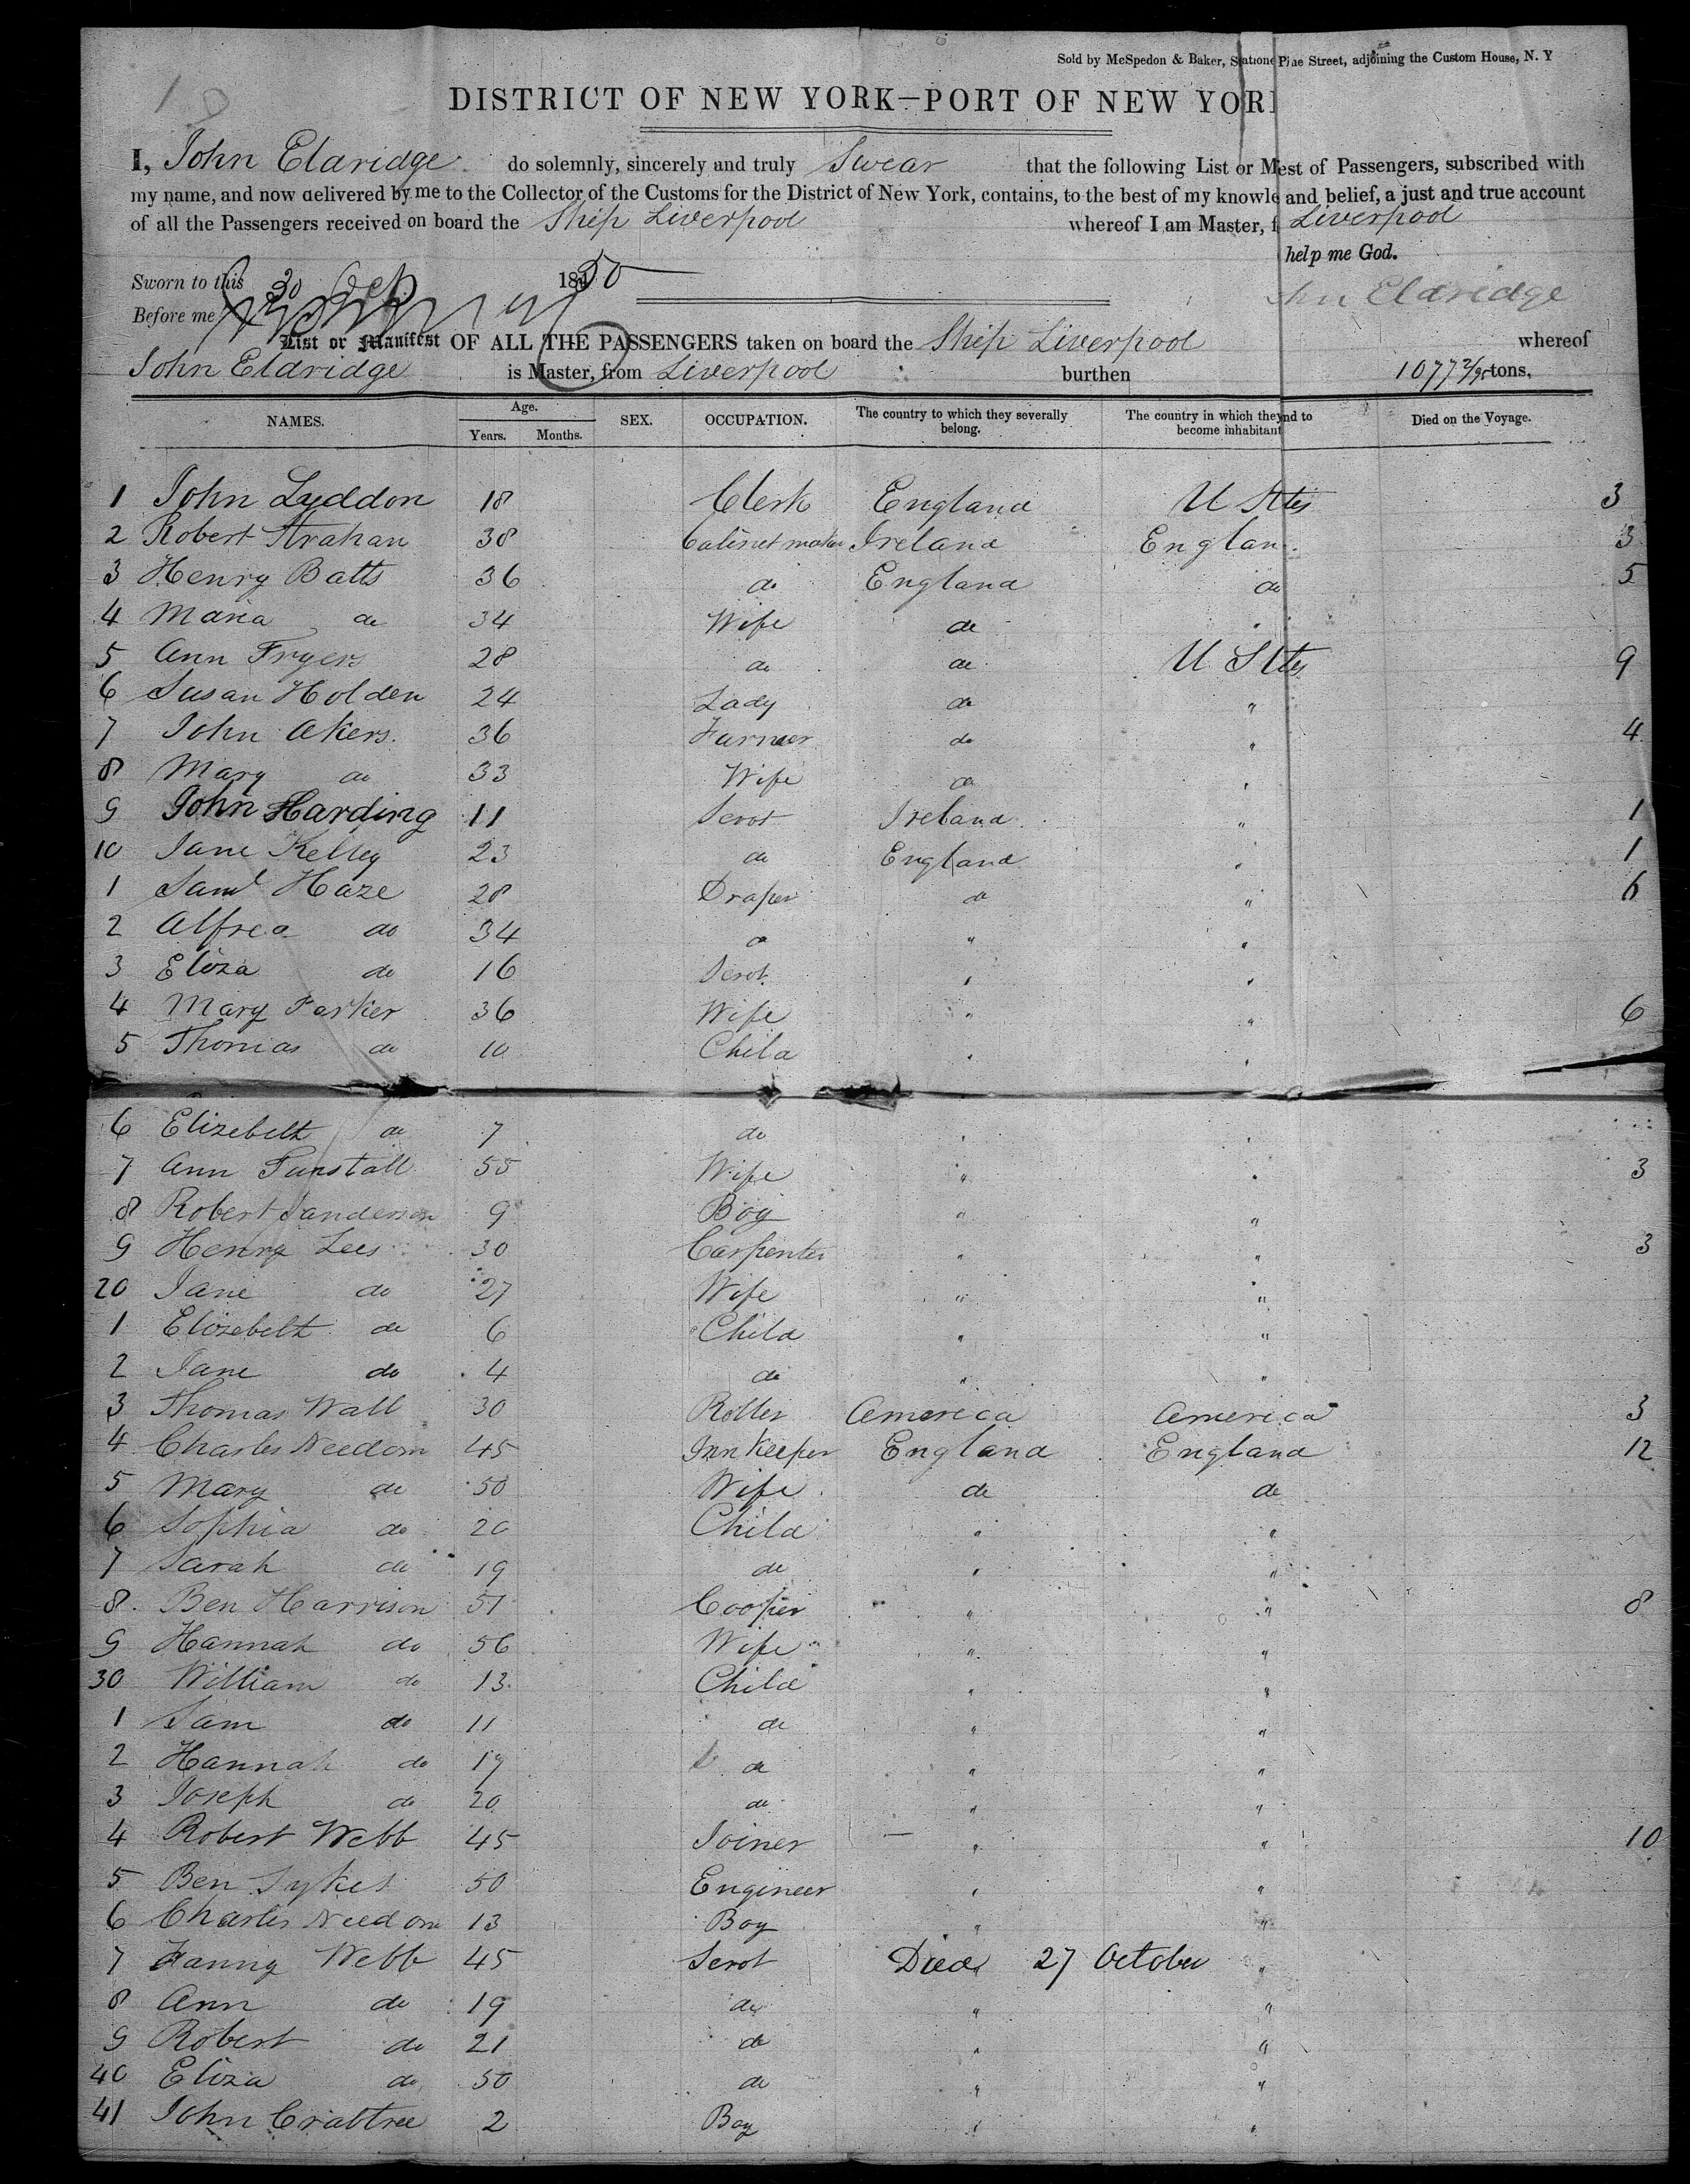 Sold by McSpedon & Baker, Statione Pine Street, adjoining the Custom House, N. Y
DISTRICT OF NEW YORK—PORT OF NEW YOR
I, John Eldridge do solemnly, sincerely and truly Swear that the following List or M est of Passengers, subscribed with
my name, and now delivered by me to the Collector of the Customs for the District of New York, contains, to the best of my knowle and belief, a just and true account
of all the Passengers received on board the Ship Liverpool whereof I am Master, f Liverpool
help me God.
Sworn to this 30 1850
hn Eldridge
Before me
List or Manifest OF ALL THE PASSENGERS taken on board the Ship Liverpool whereof
John Eldridge is Master, from Liverpool burthen 1077 2/95 tons.
NAMES. Age. Years. Months. SEX. OCCUPATION. The country to which they severally belong. The country in which they nd to become inhabitant Died on the Voyage.
1 John Lyddon 18 Clerk England U Sttes 3
2 Robert Strahan 38 Cabinet maker Ireland Englan 3
3 Henry Batts 36 do England do 5
4 Maria do 34 Wife do "
5 Ann Fryers 28 do do U Sttes 9
6 Susan Holden 24 Lady do "
7 John Akers 36 Farmer do " 4
8 Mary do 33 Wife do "
9 John Harding 11 Servt Ireland " 1
10 Jane Kelley 23 do England " 1
1 Saml Haze 28 Draper do " 6
2 Alfred do 34 do " "
3 Eliza do 16 Servt " "
4 Mary Parker 36 Wife " " 6
5 Thomas do 10 Child " "
6 Elizebeth do 7 do " "
7 Ann Tunstall 55 Wife " " 3
8 Robert Sanderson 9 Boy " "
9 Henry Lees 30 Carpenter " " 3
20 Jane do 27 Wife " "
1 Elizebeth do 6 Child " "
2 Jane do 4 do " "
3 Thomas Wall 30 Roller America America 3
4 Charles Needom 45 Inn Keeper England England 12
5 Mary do 50 Wife do do
6 Sophia do 20 Child " "
7 Sarah do 19 do " "
8 Ben Harrison 51 Cooper " " 8
9 Hannah do 56 Wife " "
30 William do 13 Child " "
1 Sam do 11 do " "
2 Hannah do 19 do " "
3 Joseph do 20 do " "
4 Robert Webb 45 Joiner " " 10
5 Ben Sykes 50 Engineer " "
6 Charles Needom 13 Boy " "
7 Fanny Webb 45 Servt Died 27 October "
8 Ann do 19 do " "
9 Robert do 21 do " "
40 Eliza do 50 do " "
41 John Crabtree 2 Boy " "